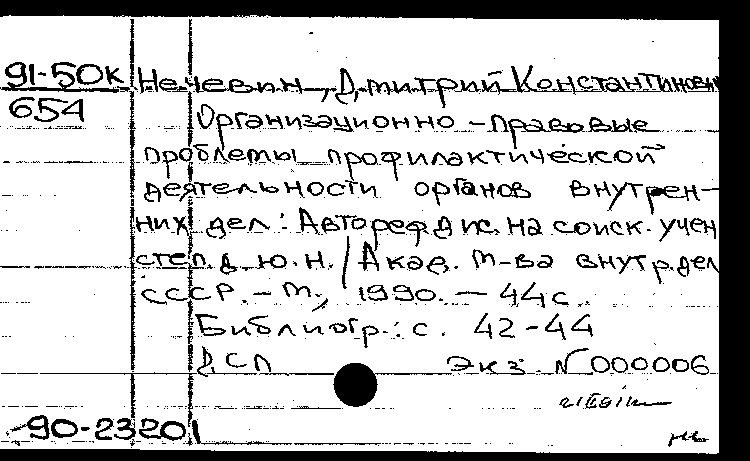 91-50к Нечевин, Дмитрий Константинович
654
Организационно-правовые
проблемы профилактической
деятельности органов внутрен-
них дел: Автореф дис. на соиск. учен
степ. д. ю. н. / Акад. М-ва внутр. дел
СССР. - М., 1990. - 44с.
Библиогр.: с. 42-44
ДСП Экз. N 000006
90-23201